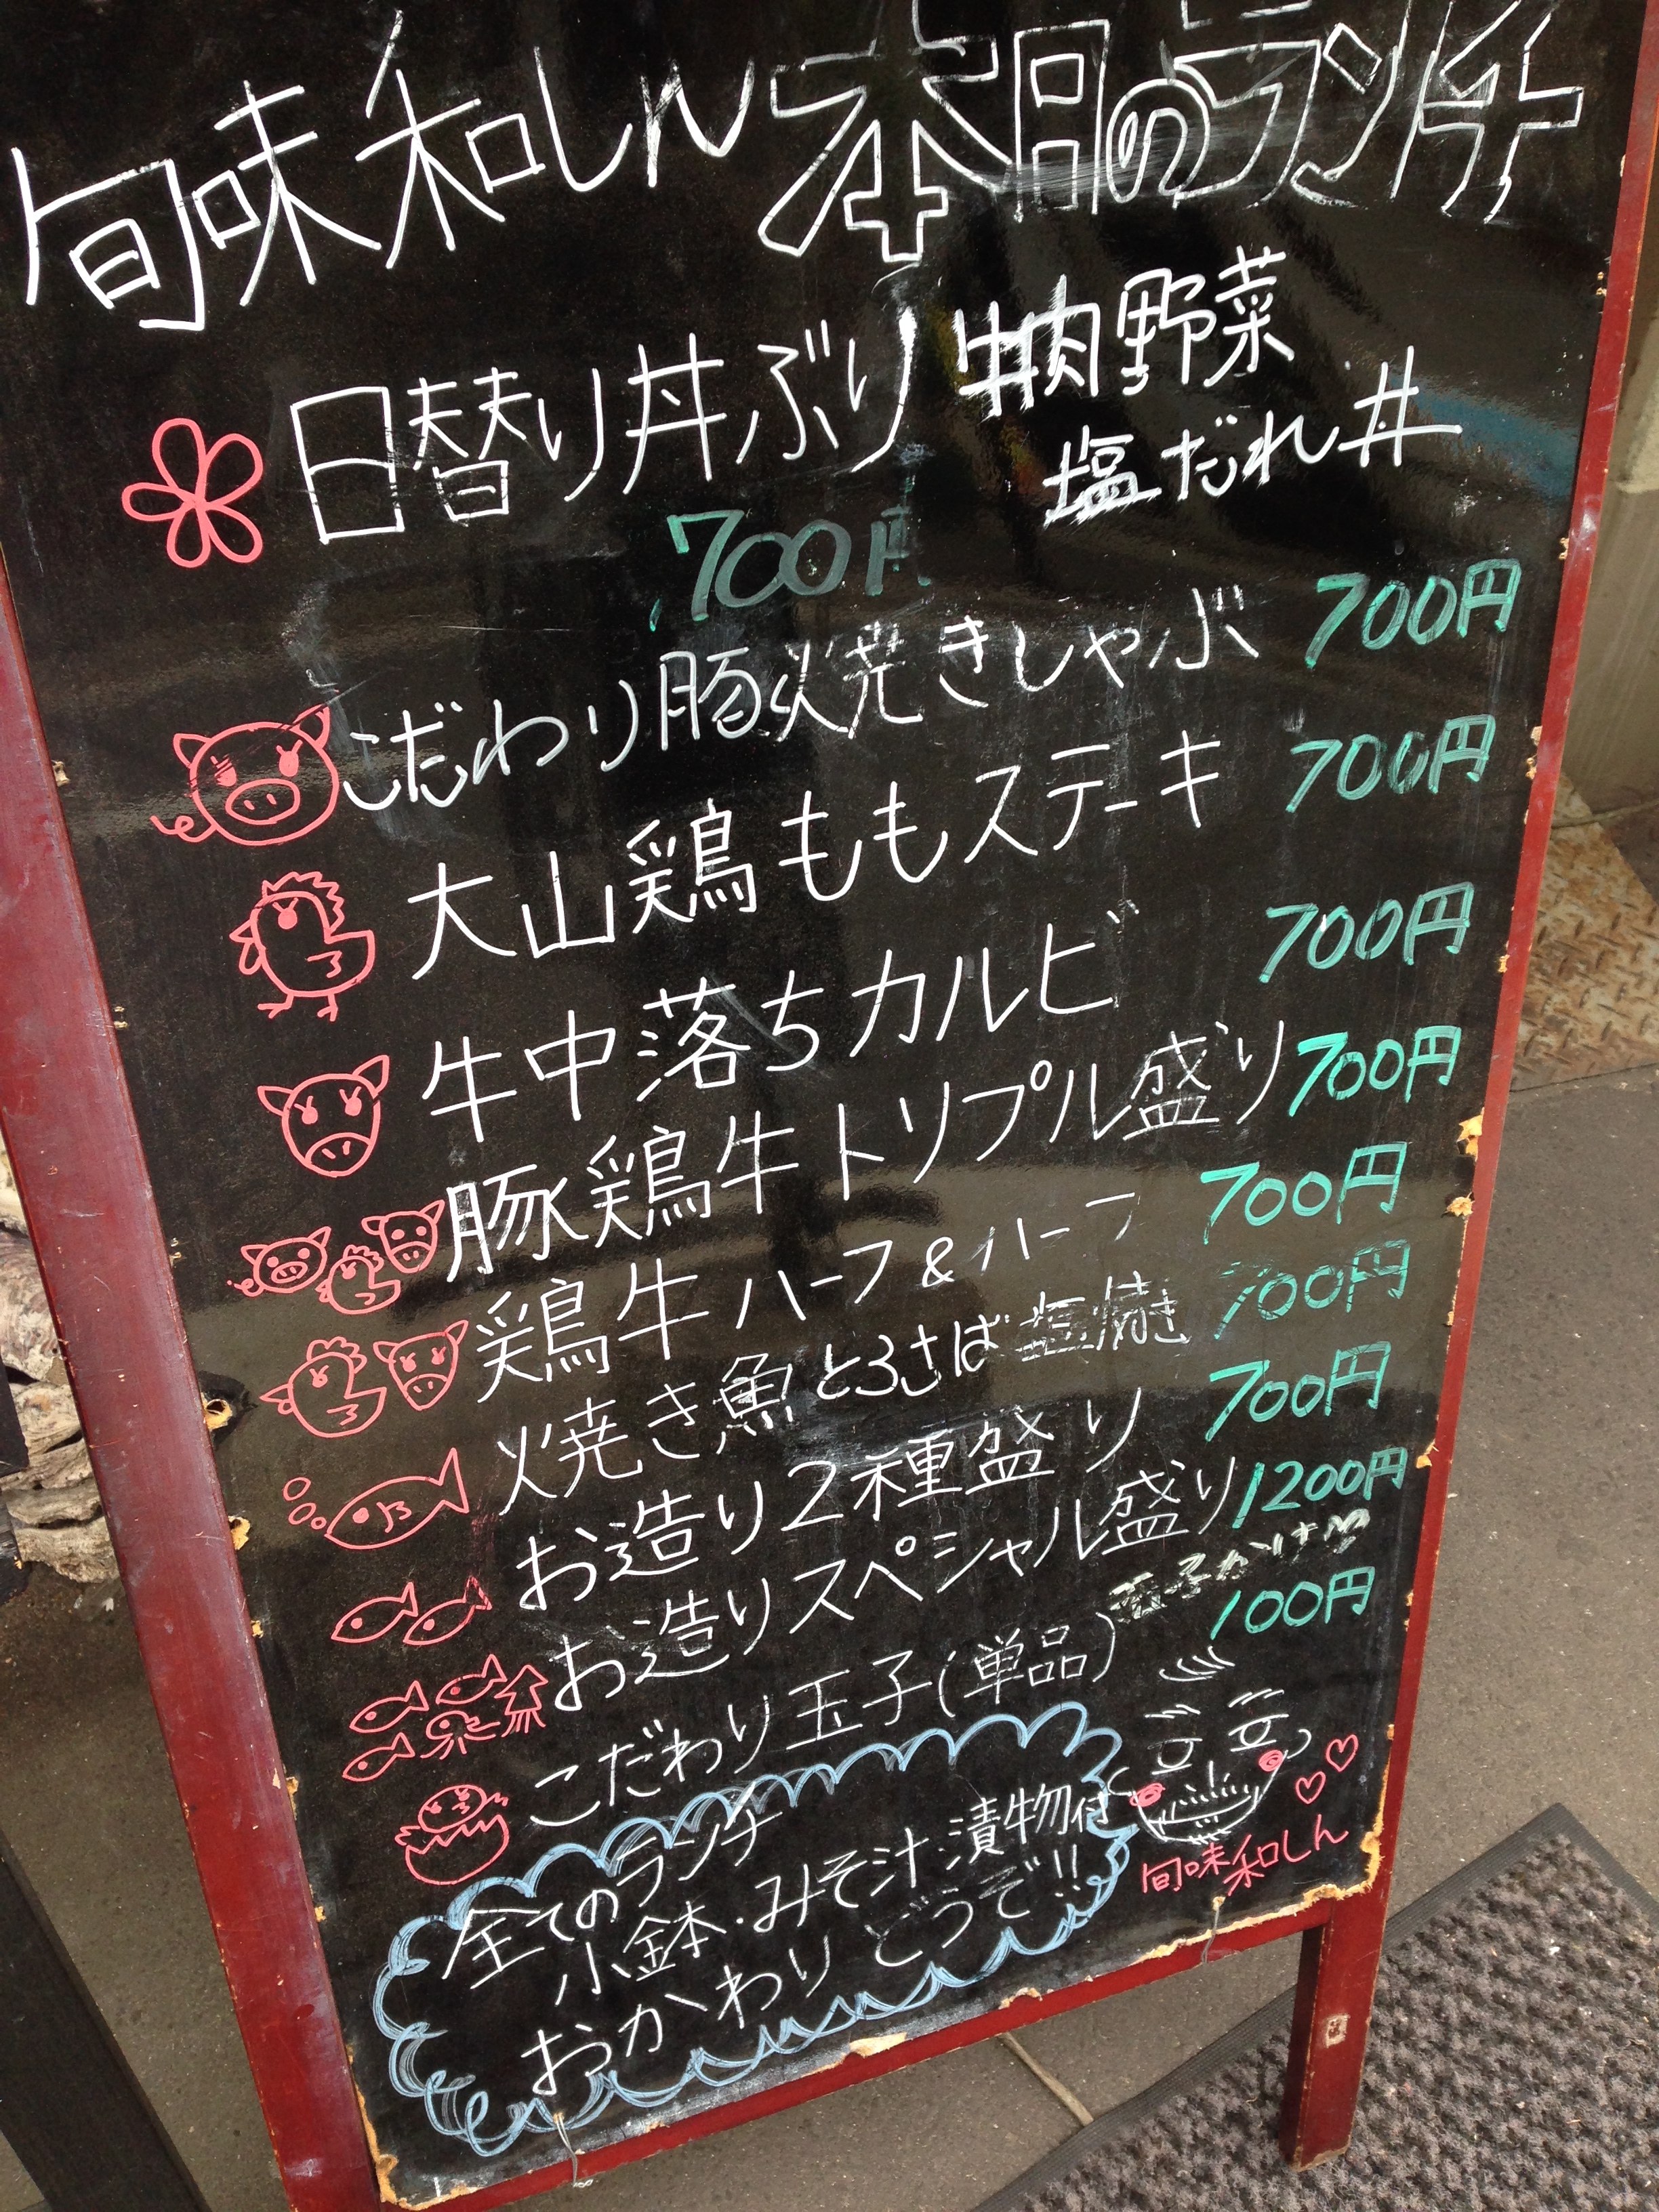 旬味 和しん 本日のランチ
日替り丼ぶり 牛肉野菜
塩だれ丼
700円
こだわり豚焼きしゃぶ 700円
大山鶏ももステーキ 700円
牛中落ちカルビ 700円
豚鶏牛トリプル盛り 700円
鶏牛ハーフ&ハーフ 700円
焼き魚 とろさば塩焼き 700円
お造り2種盛り 700円
お造りスペシャル盛り 1200円
玉子かけ
こだわり玉子(単品) 100円
全てのランチ
小鉢・みそ汁 漬物付
おかわり どうぞ!!
旬味 和しん